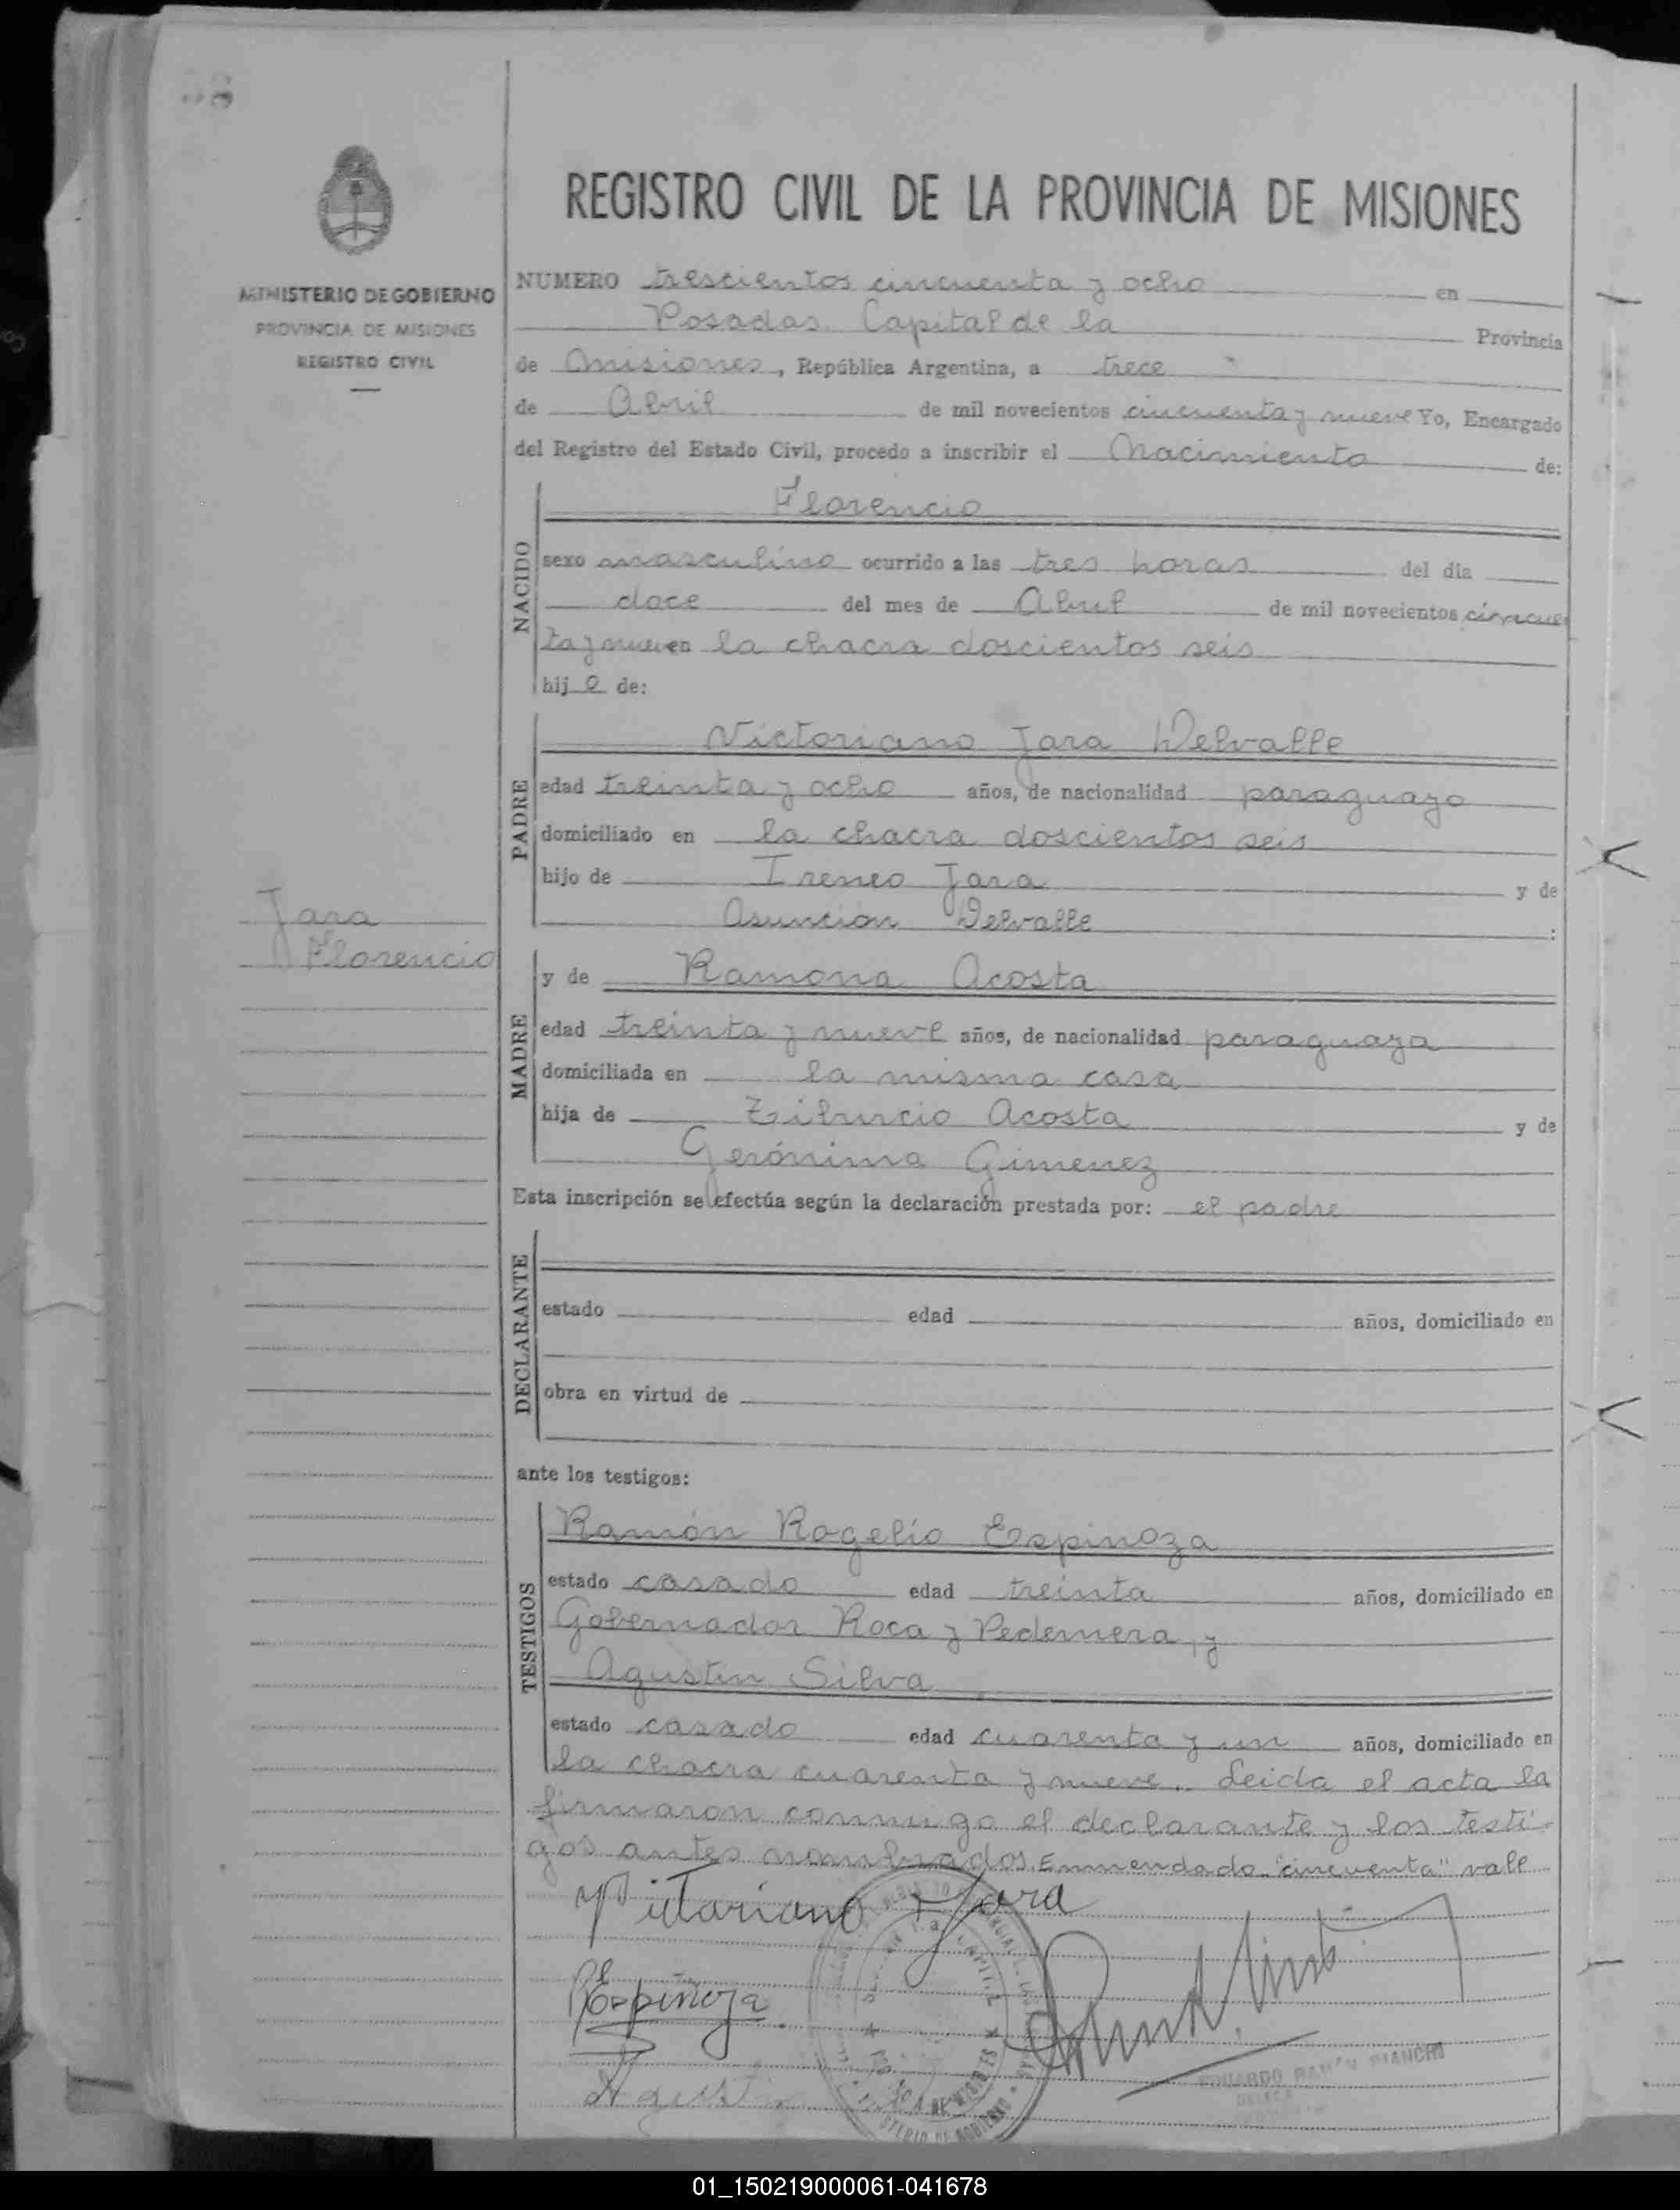 REGISTRO CIVIL DE LA PROVINCIA DE MISIONES
MINISTERIO DE GOBIERNO
PROVINCIA DE MISIONES
REGISTRO CIVIL
NUMERO trescientos cincuenta y ocho en
Posadas Capital de la Provincia
de Misiones, República Argentina, a trece
de Abril de mil novecientos cincuenta y nueve Yo, Encargado
del Registro del Estado Civil, procedo a inscribir el Nacimiento de:
NACIDO
Florencio
sexo masculino ocurrido a las tres horas del día
doce del mes de Abril de mil novecientos cincuen
ta y nueve en la chacra doscientos seis
hijo de:
PADRE
Victoriano Jara Delvalle
edad treinta y ocho años, de nacionalidad paraguayo
domiciliado en la chacra doscientos seis
hijo de Ireneo Jara y de
Asuncion Delvalle :
Jara
Florencio
MADRE
y de Ramona Acosta
edad treinta y nueve años, de nacionalidad paraguaya
domiciliada en la misma casa
hija de Tiburcio Acosta y de
Gerónima Gimenez
Esta inscripción se efectúa según la declaración prestada por: el padre
DECLARANTE
estado edad años, domiciliado en
obra en virtud de
ante los testigos:
TESTIGOS
Ramón Rogelio Espinoza
estado casado edad treinta años, domiciliado en
Gobernador Roca y Pedernera, y
Agustin Silva
estado casado edad cuarenta y un años, domiciliado en
la chacra cuarenta y nueve. Leida el acta la
firmaron conmigo el declarante y los testi-
gos antes nombrados. Enmendado "cincuenta" vale
Victoriano Jara
REspinoza
Agustin
EDUARDO RAMÓN BIANCHI
01_150219000061-041678